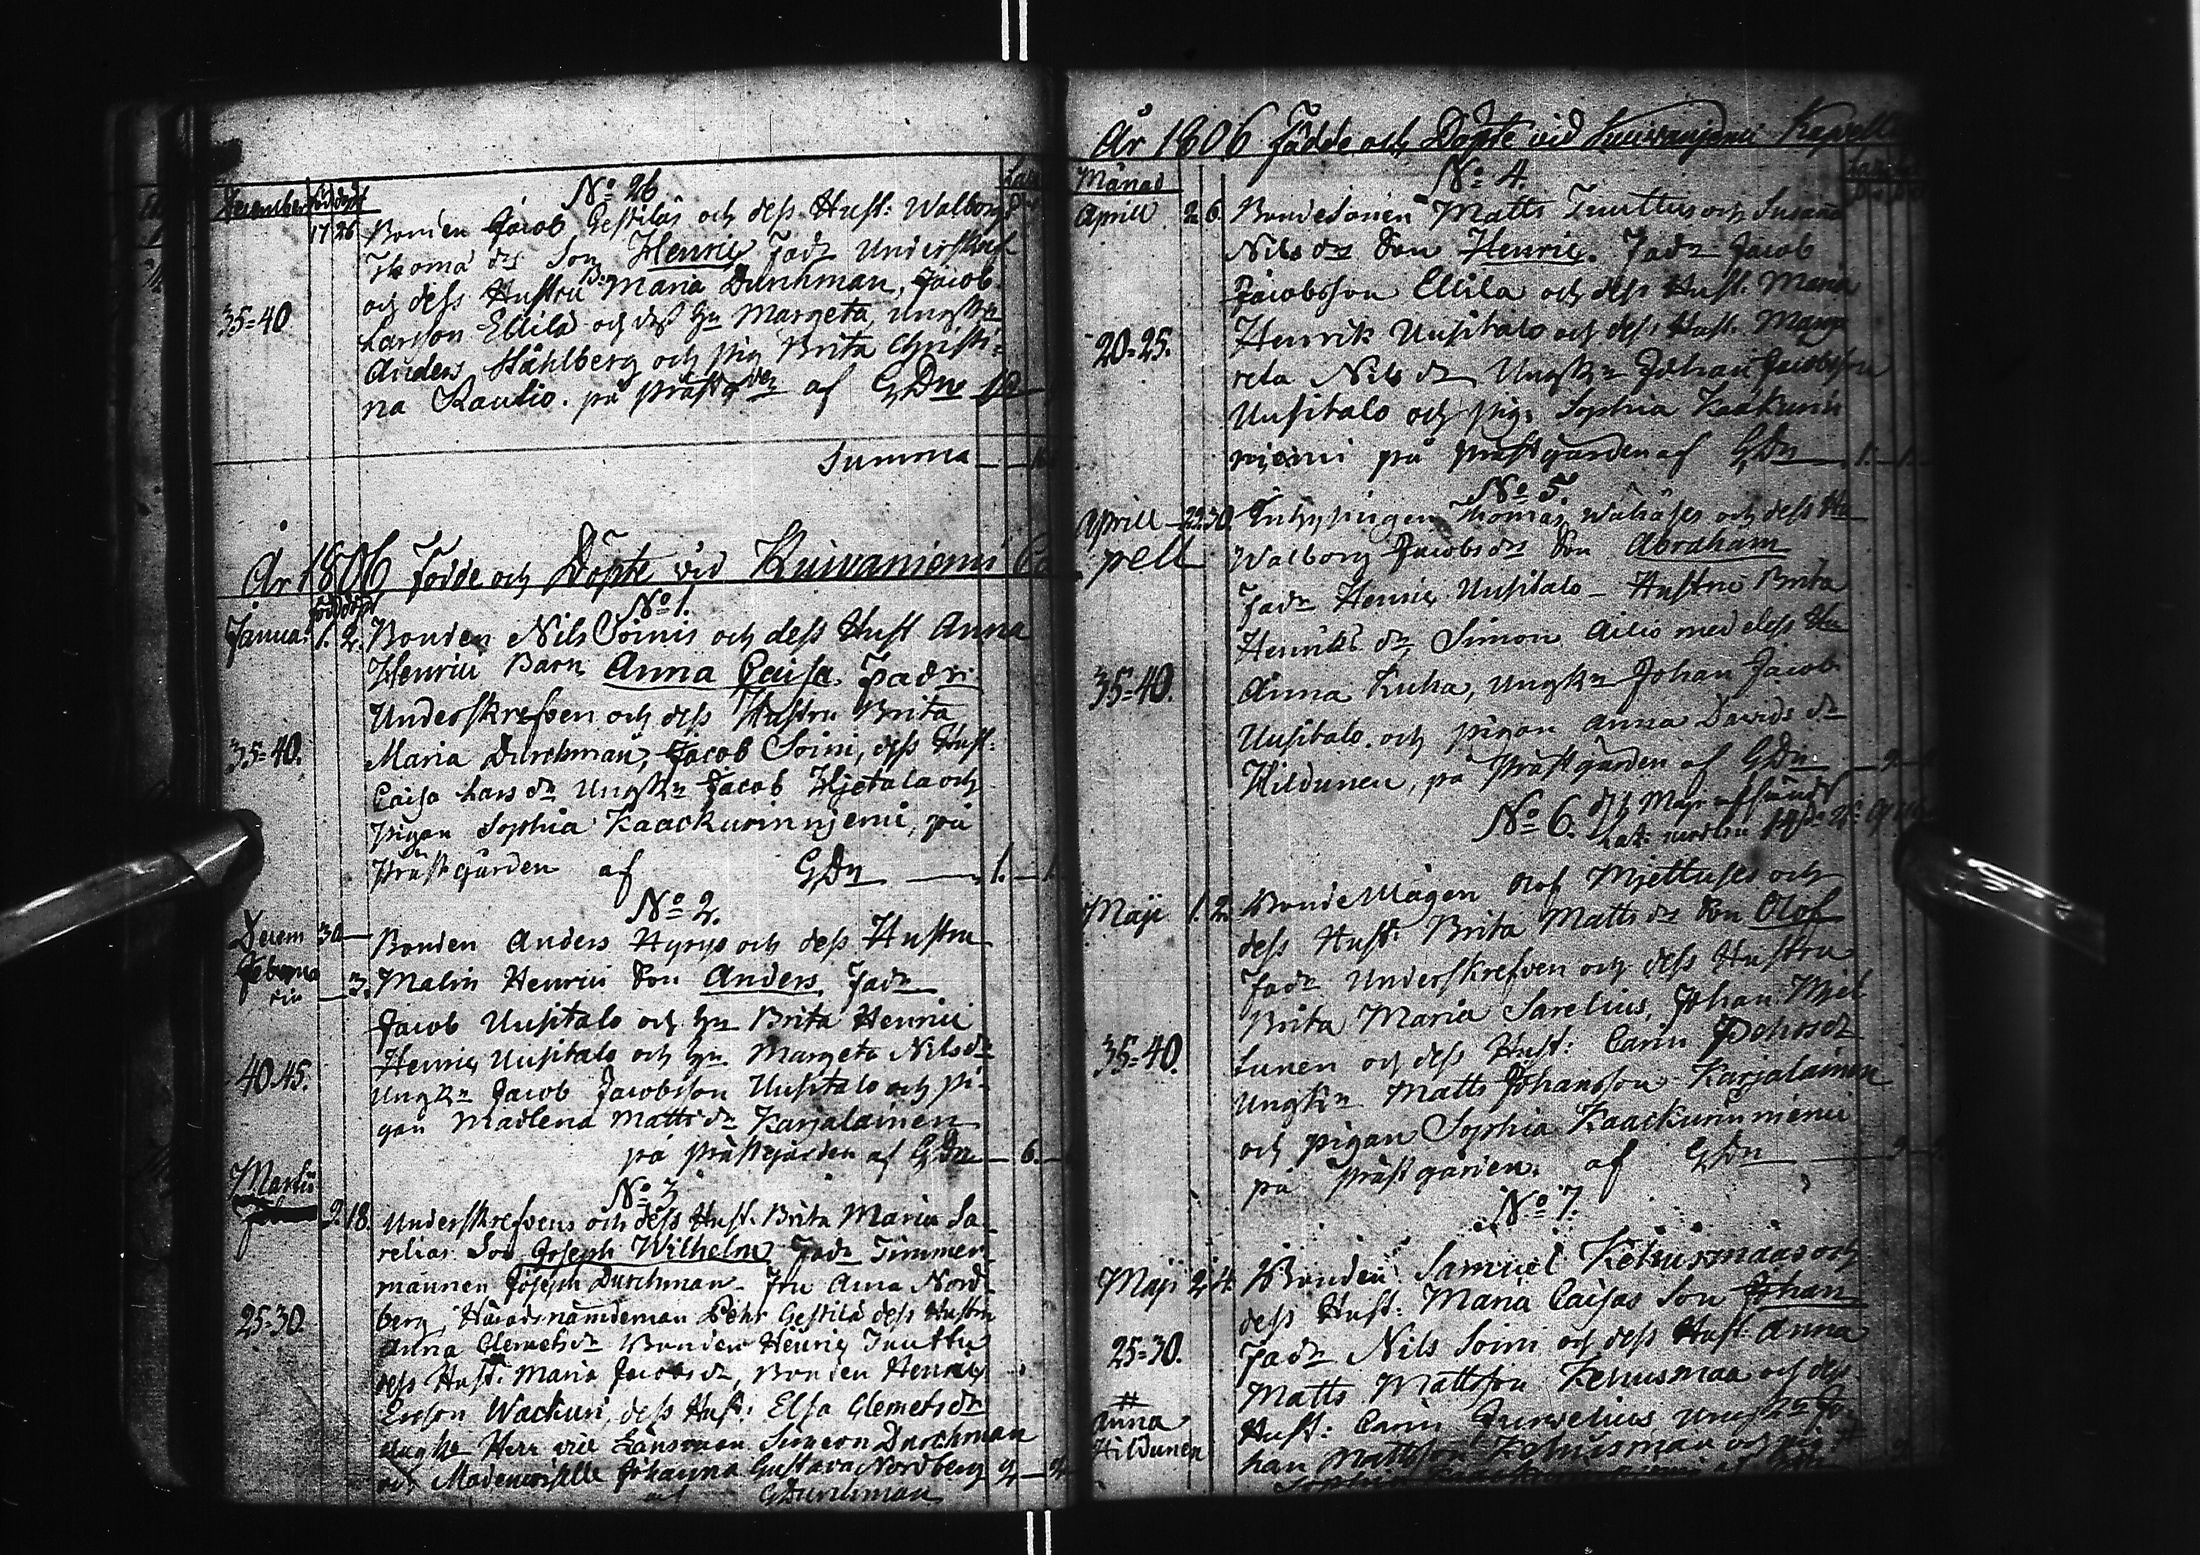 December född döpt
No 26
17 26 Bonden Jacob Gestilas och dess Hust: Walborg
Thoma dr Son Henric Fadr Underskref
och dess Hustru Br Maria Durchman, Jacob
35=40
Larsson Ellilä och dess Hu Margeta, ungkn
Anders Ståhlberg och pig Brita Christi=
na Kautio. på prästg den af GDn
Summa
År 1806 Födde och Döpte vid Kuivaniemi Ca
född döpt
No 1.
Janua. 1. 2. Bonden Nils Soinis och dess Hust Anna
Henrici Barn Anna Caisa. Fadr
Underskrefven och dess Hustru Brita
35=40.
Maria Durchman, Jacob Soini, dess Hust:
Caisa Lars dr Ungkn Jacob Hjetala och
pigan Sophia Kaackurinnjemi, på
Prästgården af GDn 1.
No 2.
Decem 30 Bonden Anders Hyrys och dess Hustru
Februa
rii 3. Malin Henrici Son Anders Fadr
Jacob Uusitalo och Hu Brita Henrici
Henric Uusitalo och Hu Margeta Nils dr
40.45.
Ungkn Jacob Jacobsson Uusitalo och pi-
gan Madlena Matts dr Karjalainen
på prästgården af GDn 6.
Martii
No 3
9. 18. Underskrefvens och dess Hust. Brita Maria Sa
relias Son Joseph Wilhelm Fadr Timmer
mannen Joseph Durchman Fru Anna Nord
25=30.
berg, Häradsnämdeman Pehr Gestilä dess Hustru
Anna Clemets dr Bonden Henric Tuuttu
dess Hust. Maria Jacobs dr, Bonden Henric
Ericson Wackuri, dess Hust: Elsa Clemets dr
Ungkn Herr vice Länsman Simeon Durchman
och Mademoiselle Johanna Gustava Nordberg
af GDurchman
År 1806 Födde och Döpte vid Kuivanjemi Kapell
Månad
No 4.
Aprill 2 6. Bondesonen Matts Tuuttus och Susanna
Nils dr Son Henric. Fadr Jacob
Jacobsson Ellilä och dess Hust. Maria
20=25.
Henrik Uusitalo och dess Hust. Marga
reta Nils dr Ungkn Johan Jacobsson
Uusitalo och pig. Sophia Kaakurin
njemi på prästgården af GDn 1. 1.
No 5.
Aprill 22 30. Inhysingen Thomas och dess Hu
pell Walborg Jacobs dr Son Abraham
Fadr Henric Uusitalo Hustru Brita
Henriks dr, Simon Ailio med dess Hu
35=40.
Anna Kuha, Ungkn Johan Jacob
Uusitalo. och pigan Anna Davids dr
Hildunen, på Prästgården af GDn
No 6.
Maji 1. 2. BondeMågen Olof Mjettuses och
dess Hust: Brita Matts dr Son Olof
Fadr Underskrefven och dess Hustru
Brita Maria Sarelius, Johan Mjet
35=40.
tunen och dess Hust: Carin Pehrs dr
Ungkn Matts Johansson Karjalainen
och pigan Sophia Kaackurinniemi
på prästgården. af GDn
No 7.
Maji 2 4. Bonden Samuel Kenusmaas och
dess Hust: Maria Caisas Son Johan
25=30.
Fadr Nils Soini och dess Hust Anna
Matts Mattsson Kenusmaa och dess
#
Anna
Hildunen
Hust: Carin Jurvelius Ungkn Jo
han Mattsson Kenusmaa och pig #